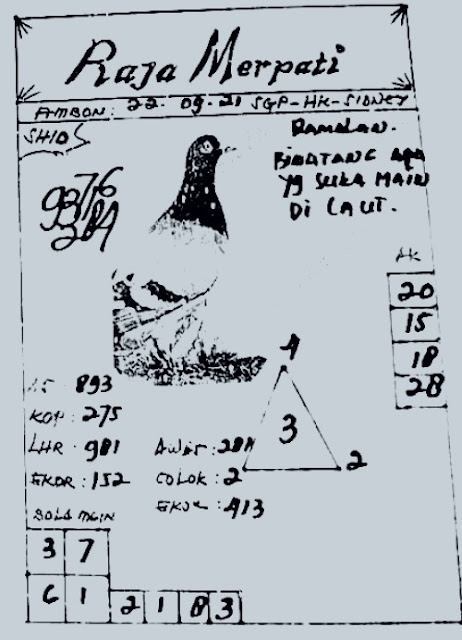 Raja Merpati
AMBON: 22-09-21 SGP-HK-SIDNEY
SHIO
RAMALAN.
BINATANG APA
Yg SUKA MAIN
Di LAUT.
9376
284
AK
20
15
18
28
AS : 893
KOP : 275
LHR : 981
EKOR : 152
4
3
2
AWAS :
COLOK : 2
EKOR : 413
BOLA MAIN
3 7
6 1
2 1 8 3